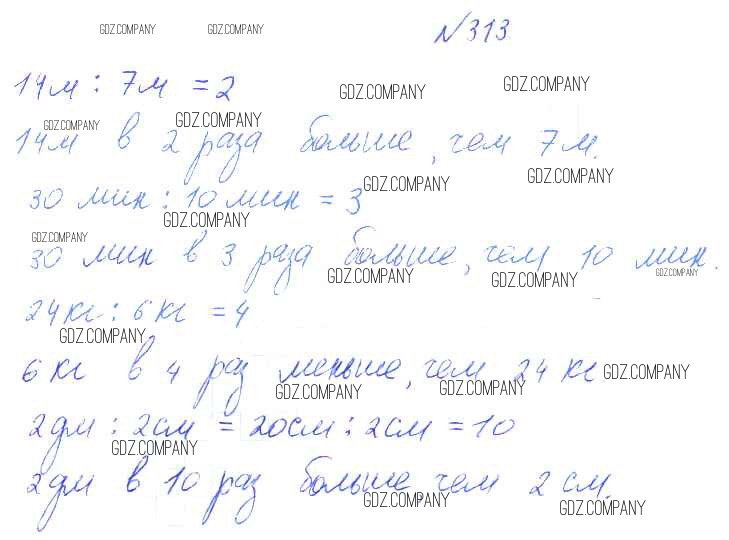 GDZ.COMPANY GDZ.COMPANY №313
14м : 7м = 2 GDZ.COMPANY GDZ.COMPANY
GDZ.COMPANY GDZ.COMPANY
14м в 2 раза больше, чем 7м.
GDZ.COMPANY GDZ.COMPANY
30 мин : 10 мин = 3
GDZ.COMPANY
GDZ.COMPANY
30 мин в 3 раза больше, чем 10 мин.
GDZ.COMPANY GDZ.COMPANY GDZ.COMPANY
24кг : 6кг = 4
GDZ.COMPANY
6кг в 4 раз меньше, чем 24 кг GDZ.COMPANY
GDZ.COMPANY GDZ.COMPANY
2дм : 2см = 20см : 2см = 10
GDZ.COMPANY
2дм в 10 раз больше чем 2 см.
GDZ.COMPANY GDZ.COMPANY